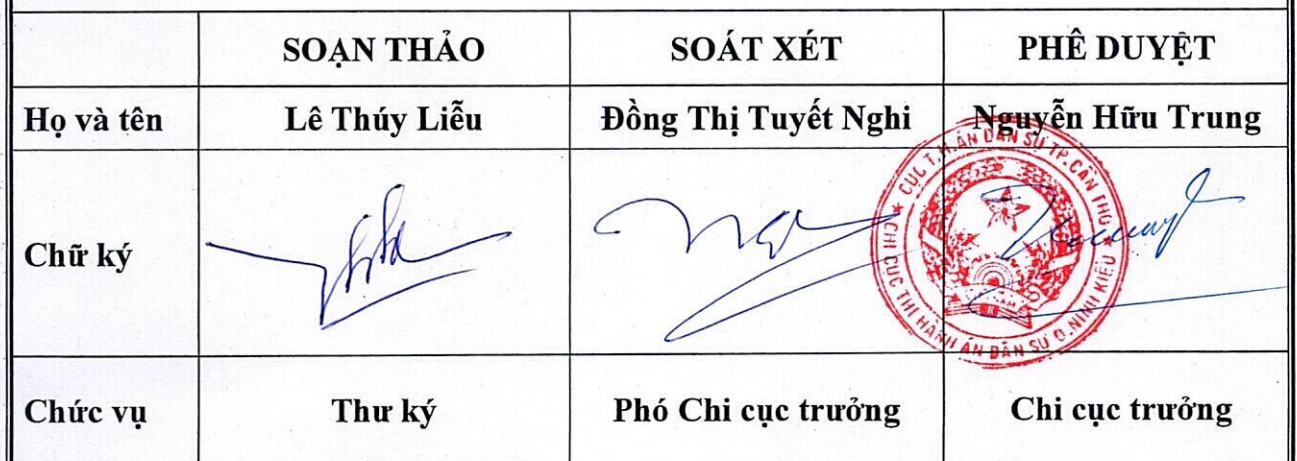 SOẠN THẢO SOÁT XÉT PHÊ DUYỆT
Họ và tên Lê Thúy Liễu Đồng Thị Tuyết Nghi Nguyễn Hữu Trung
Chữ ký
CỤC T.H.ÁN DÂN SỰ TP.CẦN THƠ
CHI CỤC THI HÀNH ÁN DÂN SỰ Q.NINH KIỀU
Chức vụ Thư ký Phó Chi cục trưởng Chi cục trưởng